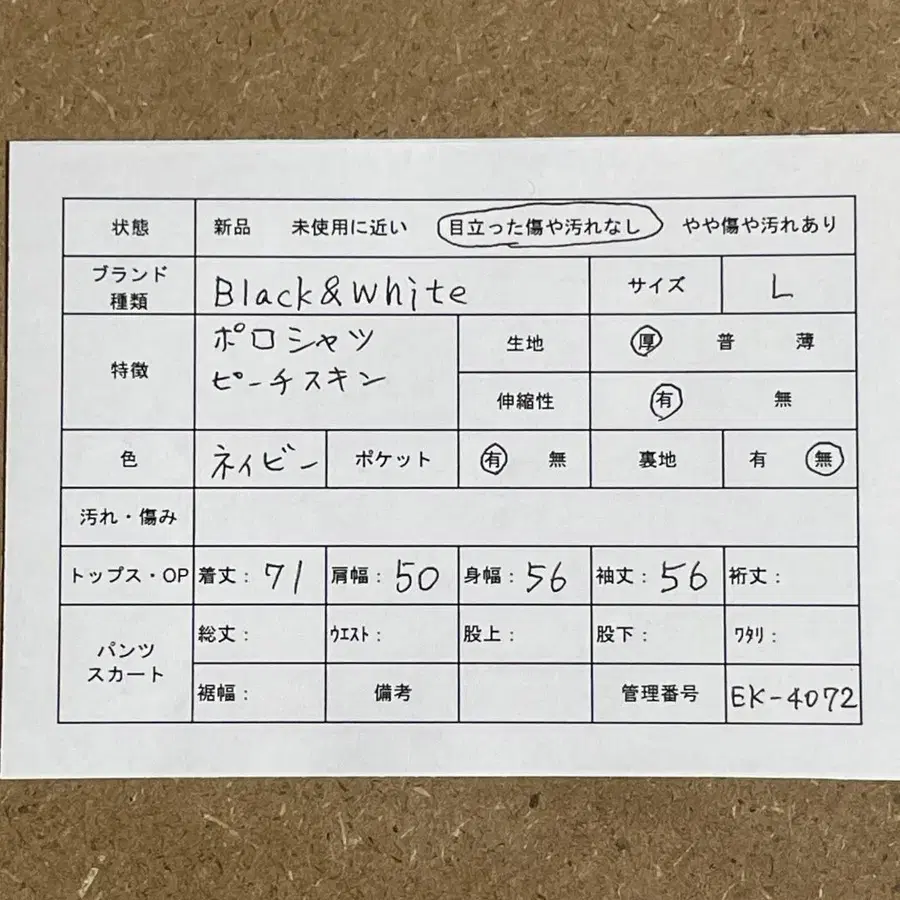 状態 新品 未使用に近い 目立った傷や汚れなし やや傷や汚れあり
ブランド
種類 Black&White サイズ L
特徴 ポロシャツ
ピーチスキン
生地 厚 普 薄
伸縮性 有 無
色 ネイビー ポケット 有 無 裏地 有 無
汚れ・傷み
トップス・OP 着丈: 71 肩幅: 50 身幅: 56 袖丈: 56 裄丈:
パンツ
スカート
総丈: ｳｴｽﾄ: 股上: 股下: ﾜﾀﾘ:
裾幅: 備考 管理番号 EK-4072